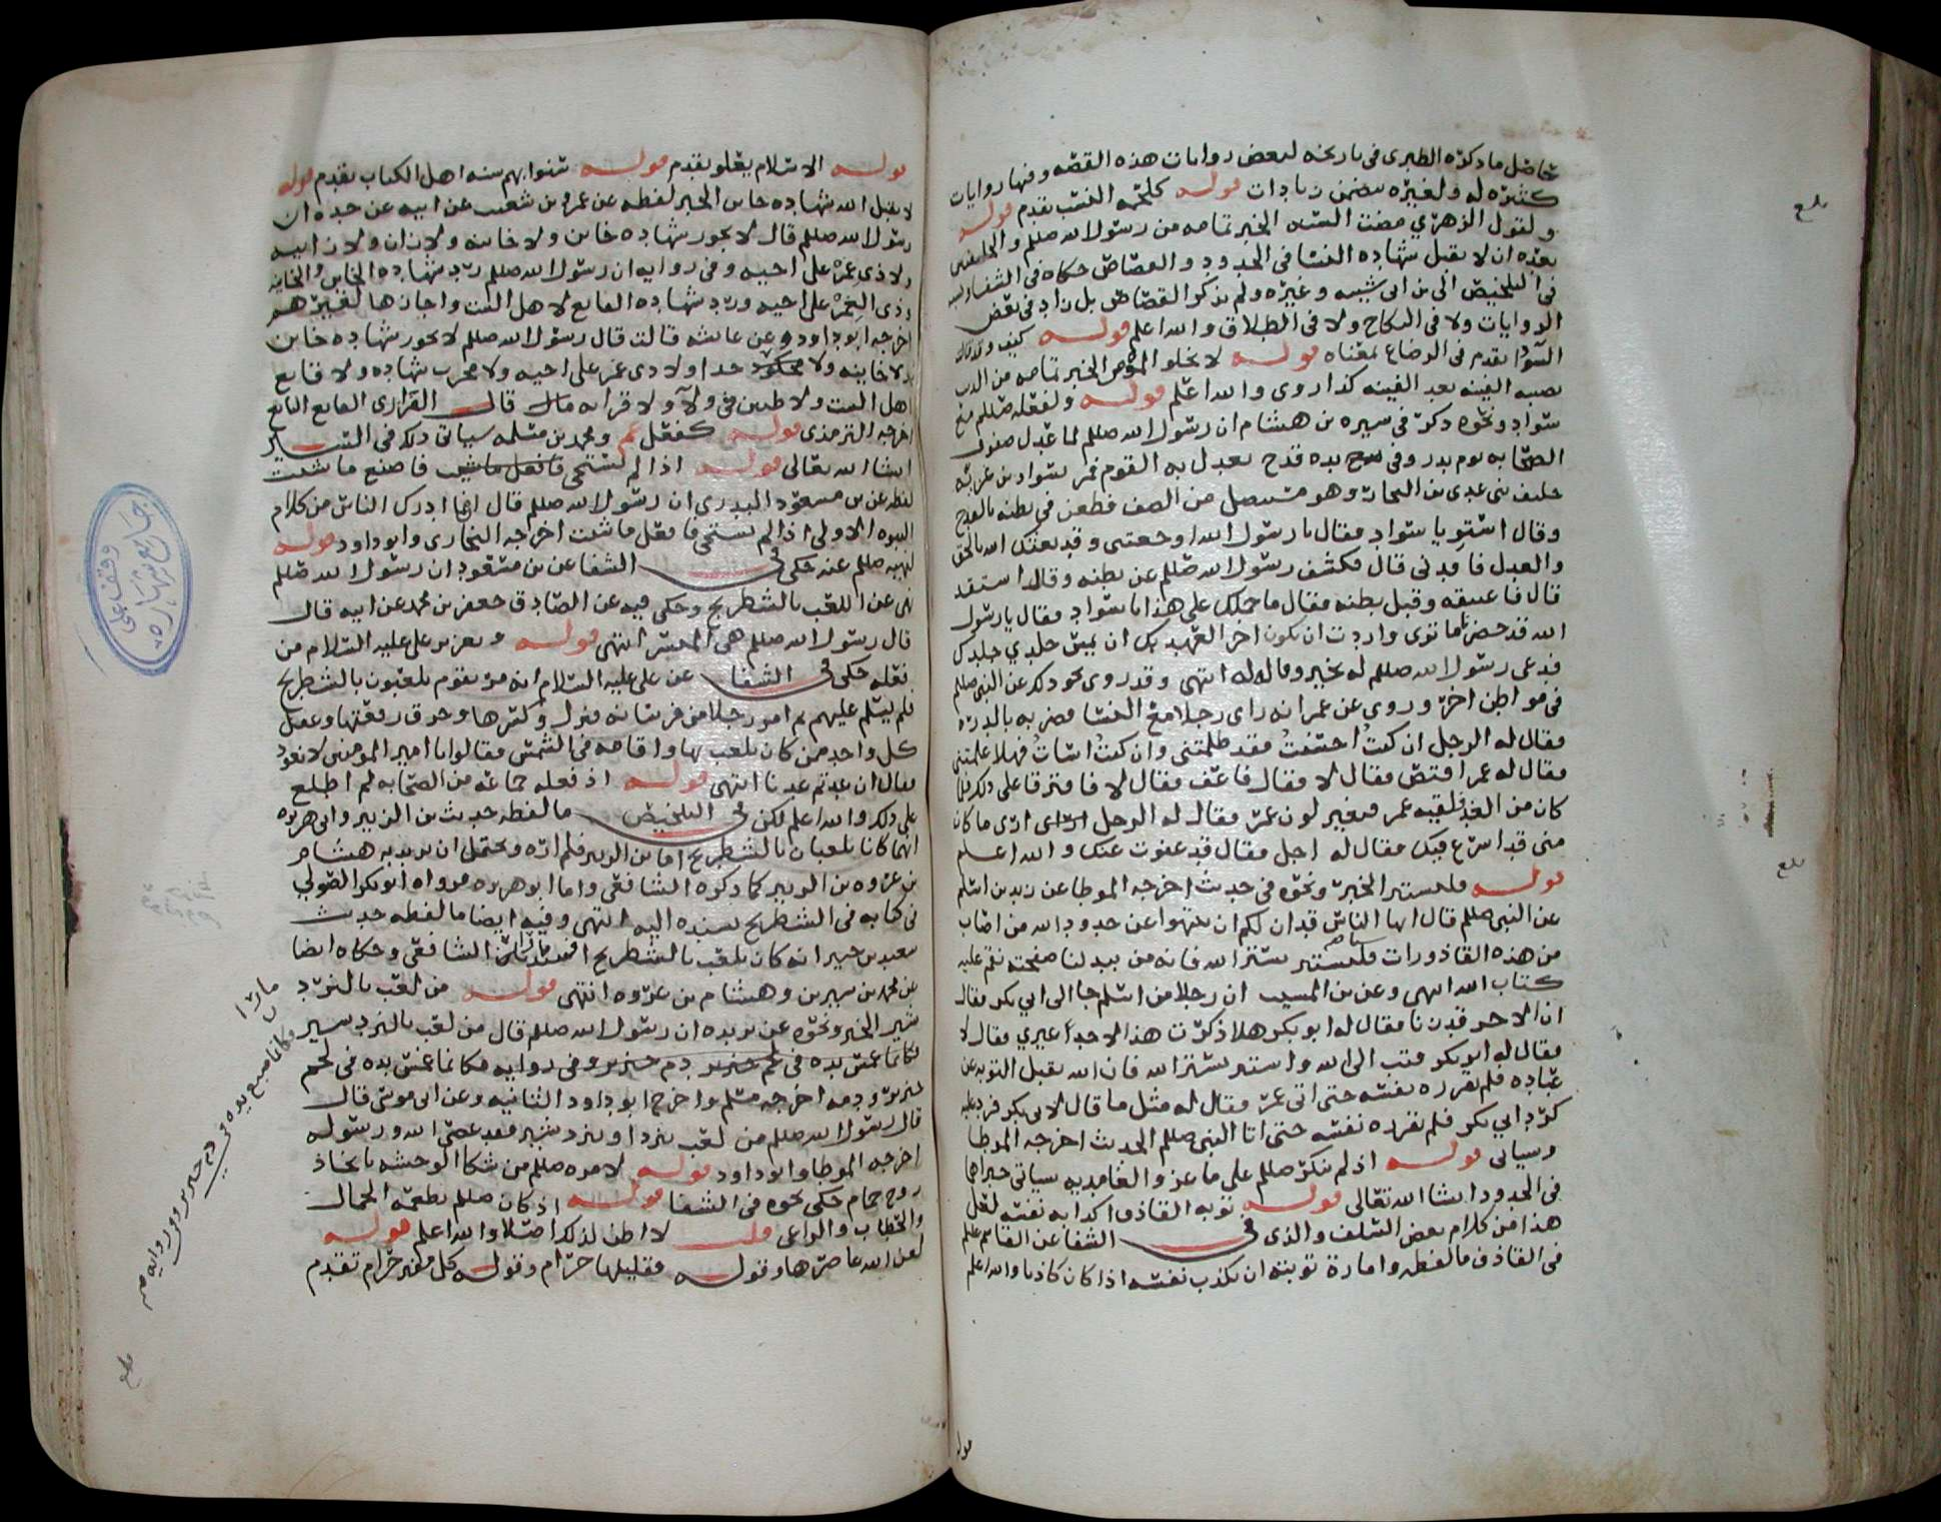 حاصل ما ذكره الطبري في تاريخه لبعض روايات هذه القصه وفيها روايات
كثيره له ولغيره تتضمن زيادات قوله كلحمه النسب تقدم قوله
ولقول الزهري مضت السنه الخبر تمامه من رسول الله صللم والخليفتين
بعده ان لا تقبل شهاده النسا في الحدود والقصاص حكاه في الشفا ونسبه
في التلخيص الى بن ابي شيبه وغيره ولم يذكر القصاص بل زاد في بعض
الروايات ولا في النكاح ولا في الطلاق والله اعلم قوله كيف وقد قالت
السودا تقدم في الرضاع بمعناه قوله لا يخلو المؤمن الخبر تمامه من الذنب
يصيبه الفينه بعد الفينه كذا روي والله اعلم قوله ولفعله صللم مع
سواد ونحوه ذكر في سيره بن هشام ان رسول الله صللم لما عدل صفوف
الصحابه يوم بدر وفي يده قدح يعدل به القوم فمر بسواد بن غزيه
حليف بني عدي بن النجار وهو مستنصل من الصف فطعن في بطنه بالقدح
وقال استو يا سواد فقال يا رسول الله اوجعتني وقد بعثك الله بالحق
والعدل فاقدني قال فكشف رسول الله صللم عن بطنه وقال استقد
قال فاعتنقه وقبل بطنه فقال ما حملك على هذا يا سواد فقال يا رسول
الله قد حضر ما ترى واردت ان يكون اخر العهد بك ان يمس جلدي جلدك
فدعى رسول الله صللم له بخير وقاله له انتهى وقد روى نحو ذلك عن النبي صللم
في مواطن اخر وروي عن عمر انه راى رجلا مع النسا فضربه بالدره
فقال له الرجل ان كنت احسنت فقد ظلمتني وان كنت اسات فهلا علمتني
فقال له عمر اقتص فقال لا فقال فاعف فقال لا فافترقا على ذلك فلما
كان من الغد فلقيه عمر فتغير لون عمر فقال له الرجل ارى ما كان
مني قد اسرع فيك فقال له اجل فقال قد عفوت عنك والله اعلم
قوله فليستتر الخبر ونحوه في حديث اخرجه الموطا عن زيد بن اسلم
عن النبي صللم قال ايها الناس قد ان لكم ان تنتهوا عن حدود الله من اصاب
من هذه القاذورات فليستتر بستر الله فانه من يبد لنا صفحته نقم عليه
كتاب الله انتهى وعن بن المسيب ان رجلا من اسلم جا الى ابي بكر فقال
ان الاخر قد زنا فقال له ابو بكر هل ذكرت هذا لاحد غيري فقال لا
فقال له ابو بكر فتب الى الله واستتر بستر الله فان الله يقبل التوبه عن
عباده فلم تقرره نفسه حتى اتى عمر فقال له مثل ما قال لابي بكر فرد عليه
كرد ابي بكر فلم تقرره نفسه حتى اتا النبي صللم الحديث اخرجه الموطا
وسياتي قوله اذ لم ينكر صللم على ماعز والغامديه سياتي خبراهما
في الحدود انشا الله تعالى قوله توبه القاذف اكذابه نفسه لعل
هذا من كلام بعض السلف والذي في الشفا عن القاسم علم
في القاذف ما لفظه وامارة توبته ان يكذب نفسه اذا كان كاذبا والله اعلم
قوله
بلغ
بلغ
قوله الاسلام يعلو تقدم قوله سنوا بهم سنه اهل الكتاب تقدم قوله
لا يقبل الله شهاده خاين الخبر لفظه عن عمرو بن شعيب عن ابيه عن جده ان
رسول الله صللم قال لا تجوز شهاده خاين ولا خاينه ولا زان ولا زانيه
ولا ذي غمز على اخيه وفي روايه ان رسول الله صللم رد شهاده الخاين والخاينه
وذي الغمز على اخيه ورد شهاده القانع لاهل البيت واجازها لغيرهم
اخرجه ابو داود وعن عايشه قالت قال رسول الله صللم لا تجوز شهاده خاين
ولا خاينه ولا مجلود حدا ولا ذي غمز على اخيه ولا مجرب شهاده ولا قانع
اهل البيت ولا ظنين في ولآ ولا قرابه قال الفزاري القانع التابع
اخرجه الترمذي قوله كفعل عم ومحمد بن مسلمه سياتي ذلك في السير
انشا الله تعالى قوله اذا لم تستحي فاصنع ما شئت
لفظه عن بن مسعود البدري ان رسول الله صللم قال ان ما ادرك الناس من كلام
النبوه الاولى اذا لم تستحي فافعل ما شئت اخرجه البخاري وابو داود قوله
لنهيه صللم عنه حكى في الشفا عن بن مسعود ان رسول الله صللم
نهى عن اللعب بالشطرنج وحكى فيه عن الصادق جعفر بن محمد عن ابيه قال
قال رسول الله صللم هي الميسر انتهى قوله وتعزير علي عليه السلام من
فعله حكى في الشفا عن علي عليه السلام انه مر بقوم يلعبون بالشطرنج
فلم يسلم عليهم ثم امر رجلا من فرسانه فنزل وكسرها وحرق رقعتها وعقل
كل واحد ممن كان يلعب بها واقامه في الشمس فقالوا يا امير المومنين لا نعود
فقال ان عدتم عدنا انتهى قوله اذ فعله جماعه من الصحابه لم اطلع
على ذلك والله اعلم لكن في التلخيص ما لفظه حديث بن الزبير وابي هريره
انهما كانا يلعبان بالشطرنج اما بن الزبير فلم اره ويحتمل ان يريد به هشام
بن عروه بن الزبير كما ذكره الشافعي واما ابو هريره فرواه ابو بكر الصولي
في كتابه في الشطرنج بسنده اليه انتهى وفيه ايضا ما لفظه حديث
سعيد بن جبير انه كان يلعب بالشطرنج الشافعي وحكاه ايضا
عن محمد بن سيرين وهشام بن عروه انتهى قوله من لعب بالنرد
شير الخبر ونحوه عن بريده ان رسول الله صللم قال من لعب بالنردسير
فكانما غمس يده في لحم خنزير ودم خنزير وفي روايه فكانما غمس يده في لحم
خنزير ودمه اخرجه مسلم واخرج ابو داود الثانيه وعن ابي موسى قال
قال رسول الله صللم من لعب بنرد او نرد شير فقد عصى الله ورسوله
اخرجه الموطا وابو داود قوله لامره صللم من شكا الوحشه باتخاذ
زوج حمام حكى نحوه في الشفا قوله اذ كان صللم يطعمه الحمال
والحطاب والراعي قلت لا اظن لذلك اصلا والله اعلم قوله
لعن الله عاصرها وقوله فقليلها حرام وقوله كل مخمر حرام تقدم
فكانما صبغ يده في دم خنزير وفي روايه
بلغ
وقف على
جامع شهاره